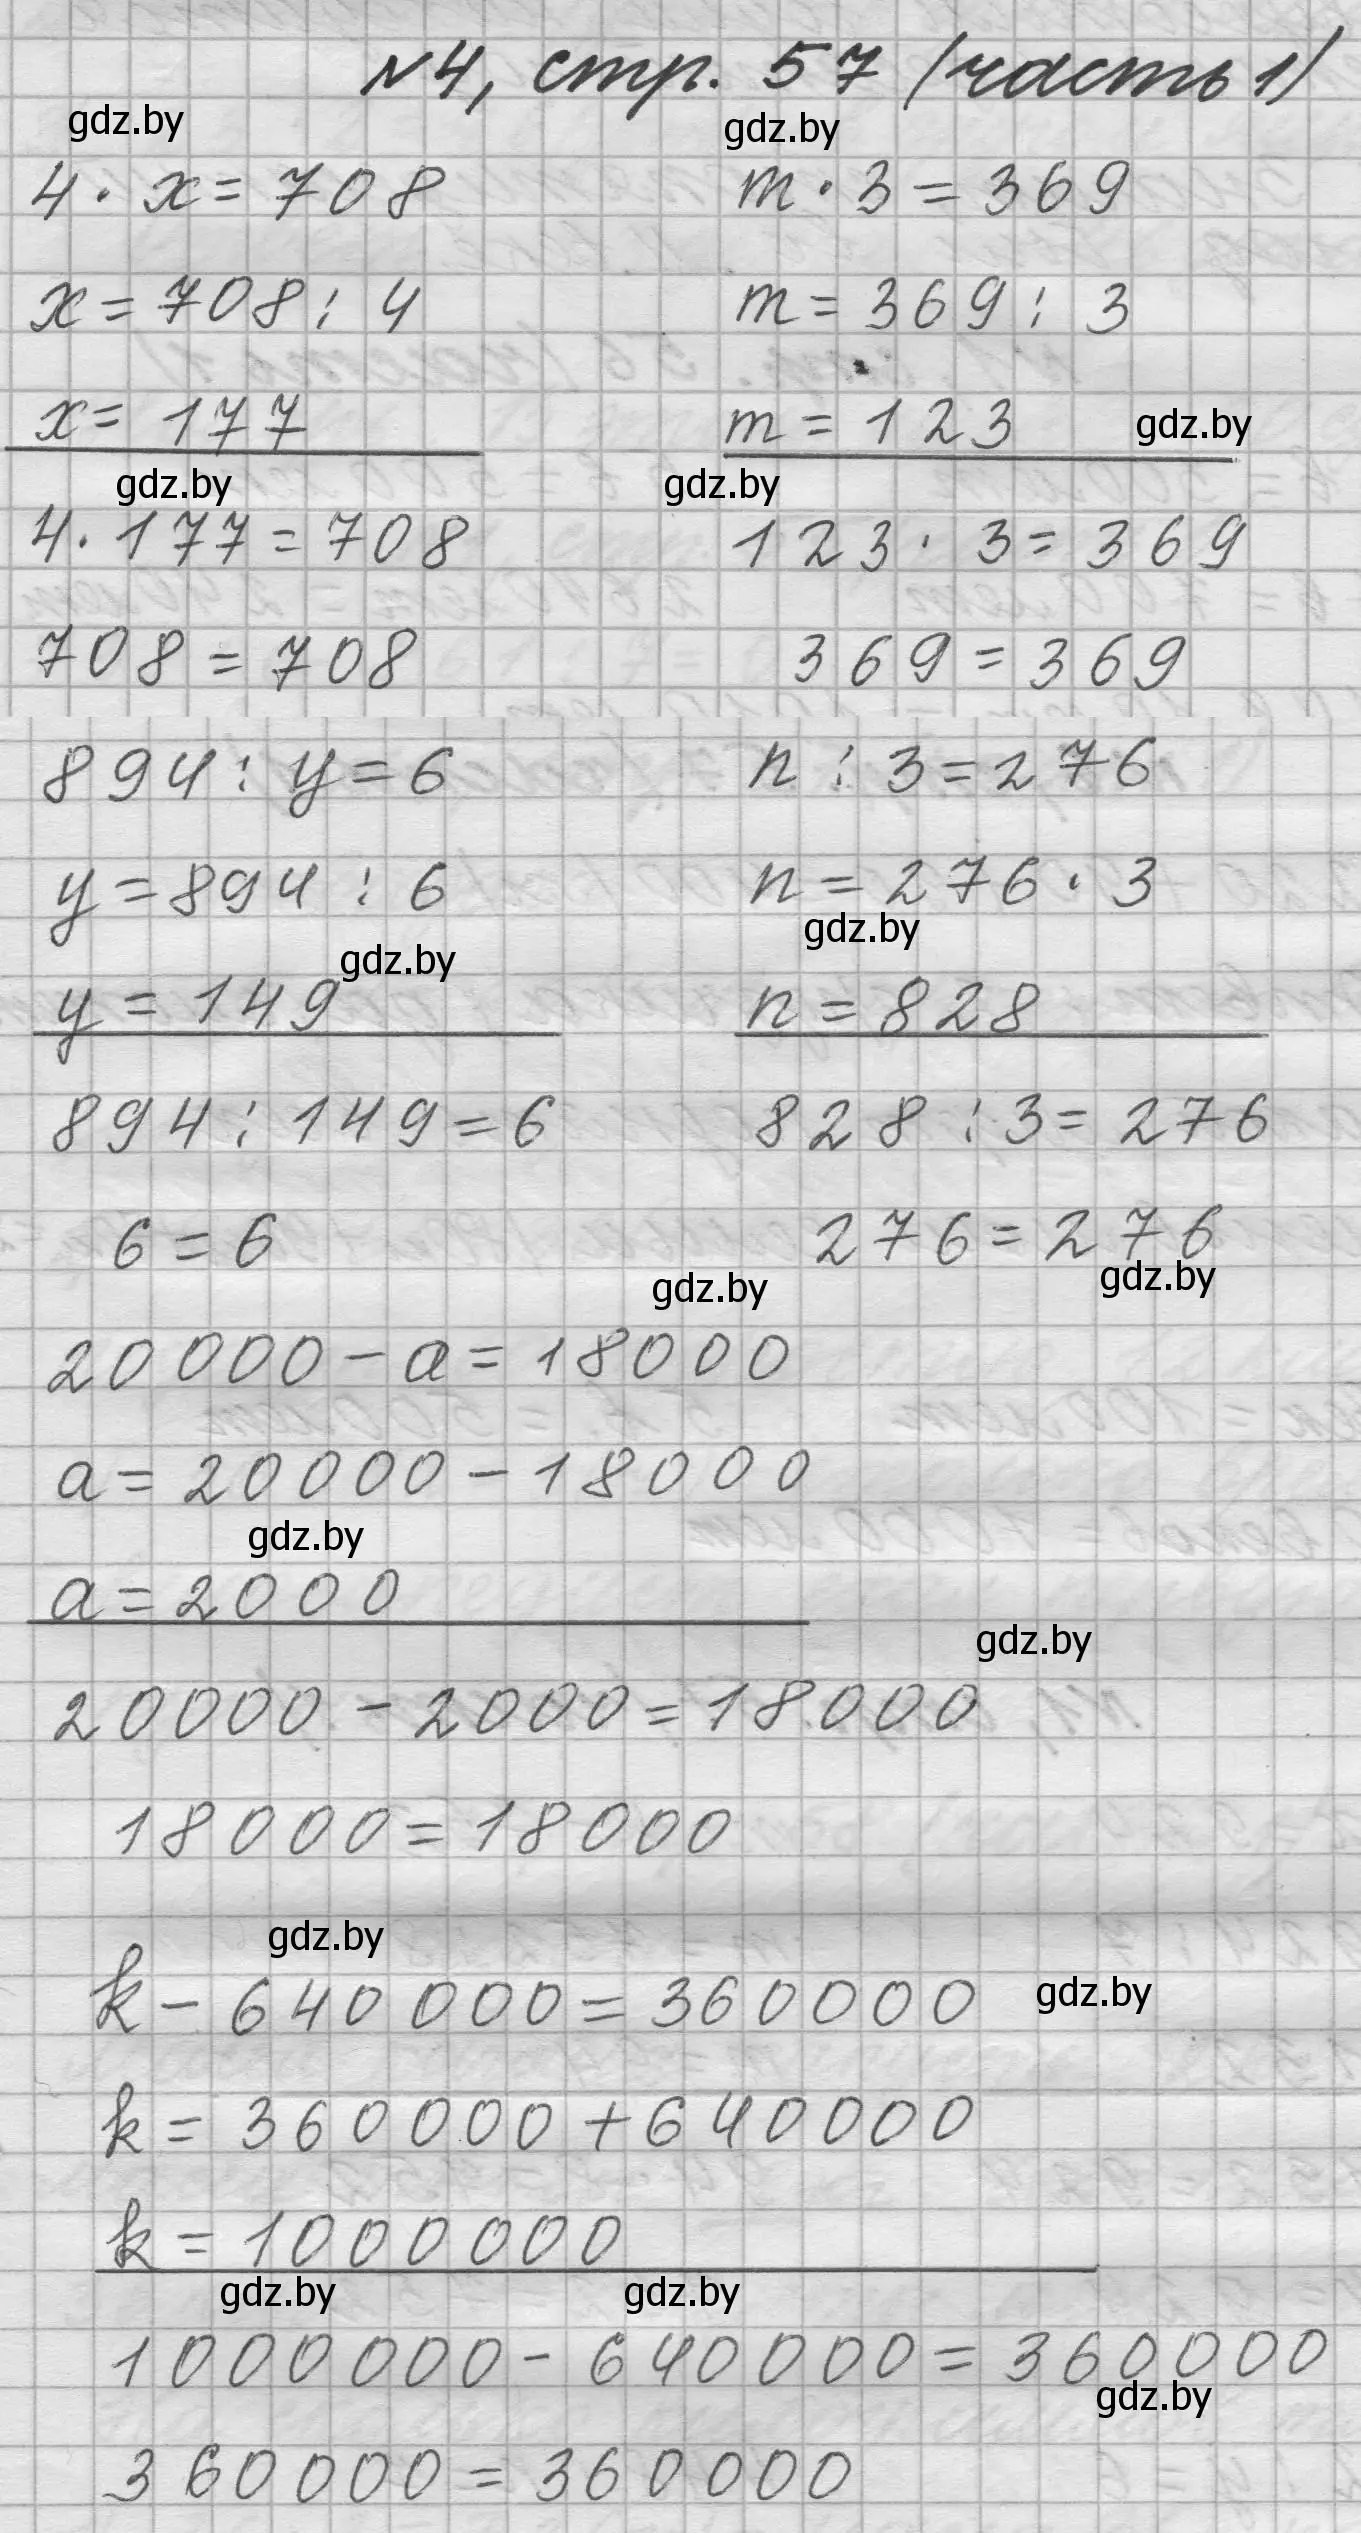 №4, стр. 57 (часть 1)
gdz.by gdz.by
4 · x = 708 m · 3 = 369
x = 708 : 4 m = 369 : 3
x = 177 m = 123 gdz.by
gdz.by gdz.by
4 · 177 = 708 123 · 3 = 369
708 = 708 369 = 369
894 : y = 6 n : 3 = 276
y = 894 : 6 n = 276 · 3
gdz.by gdz.by
y = 149 n = 828
894 : 149 = 6 828 : 3 = 276
6 = 6 276 = 276
gdz.by gdz.by
20000 - a = 18000
a = 20000 - 18000
gdz.by
a = 2000
gdz.by
20000 - 2000 = 18000
18000 = 18000
gdz.by
k - 640000 = 360000 gdz.by
k = 360000 + 640000
k = 1000000
gdz.by gdz.by
1000000 - 640000 = 360000
gdz.by
360000 = 360000